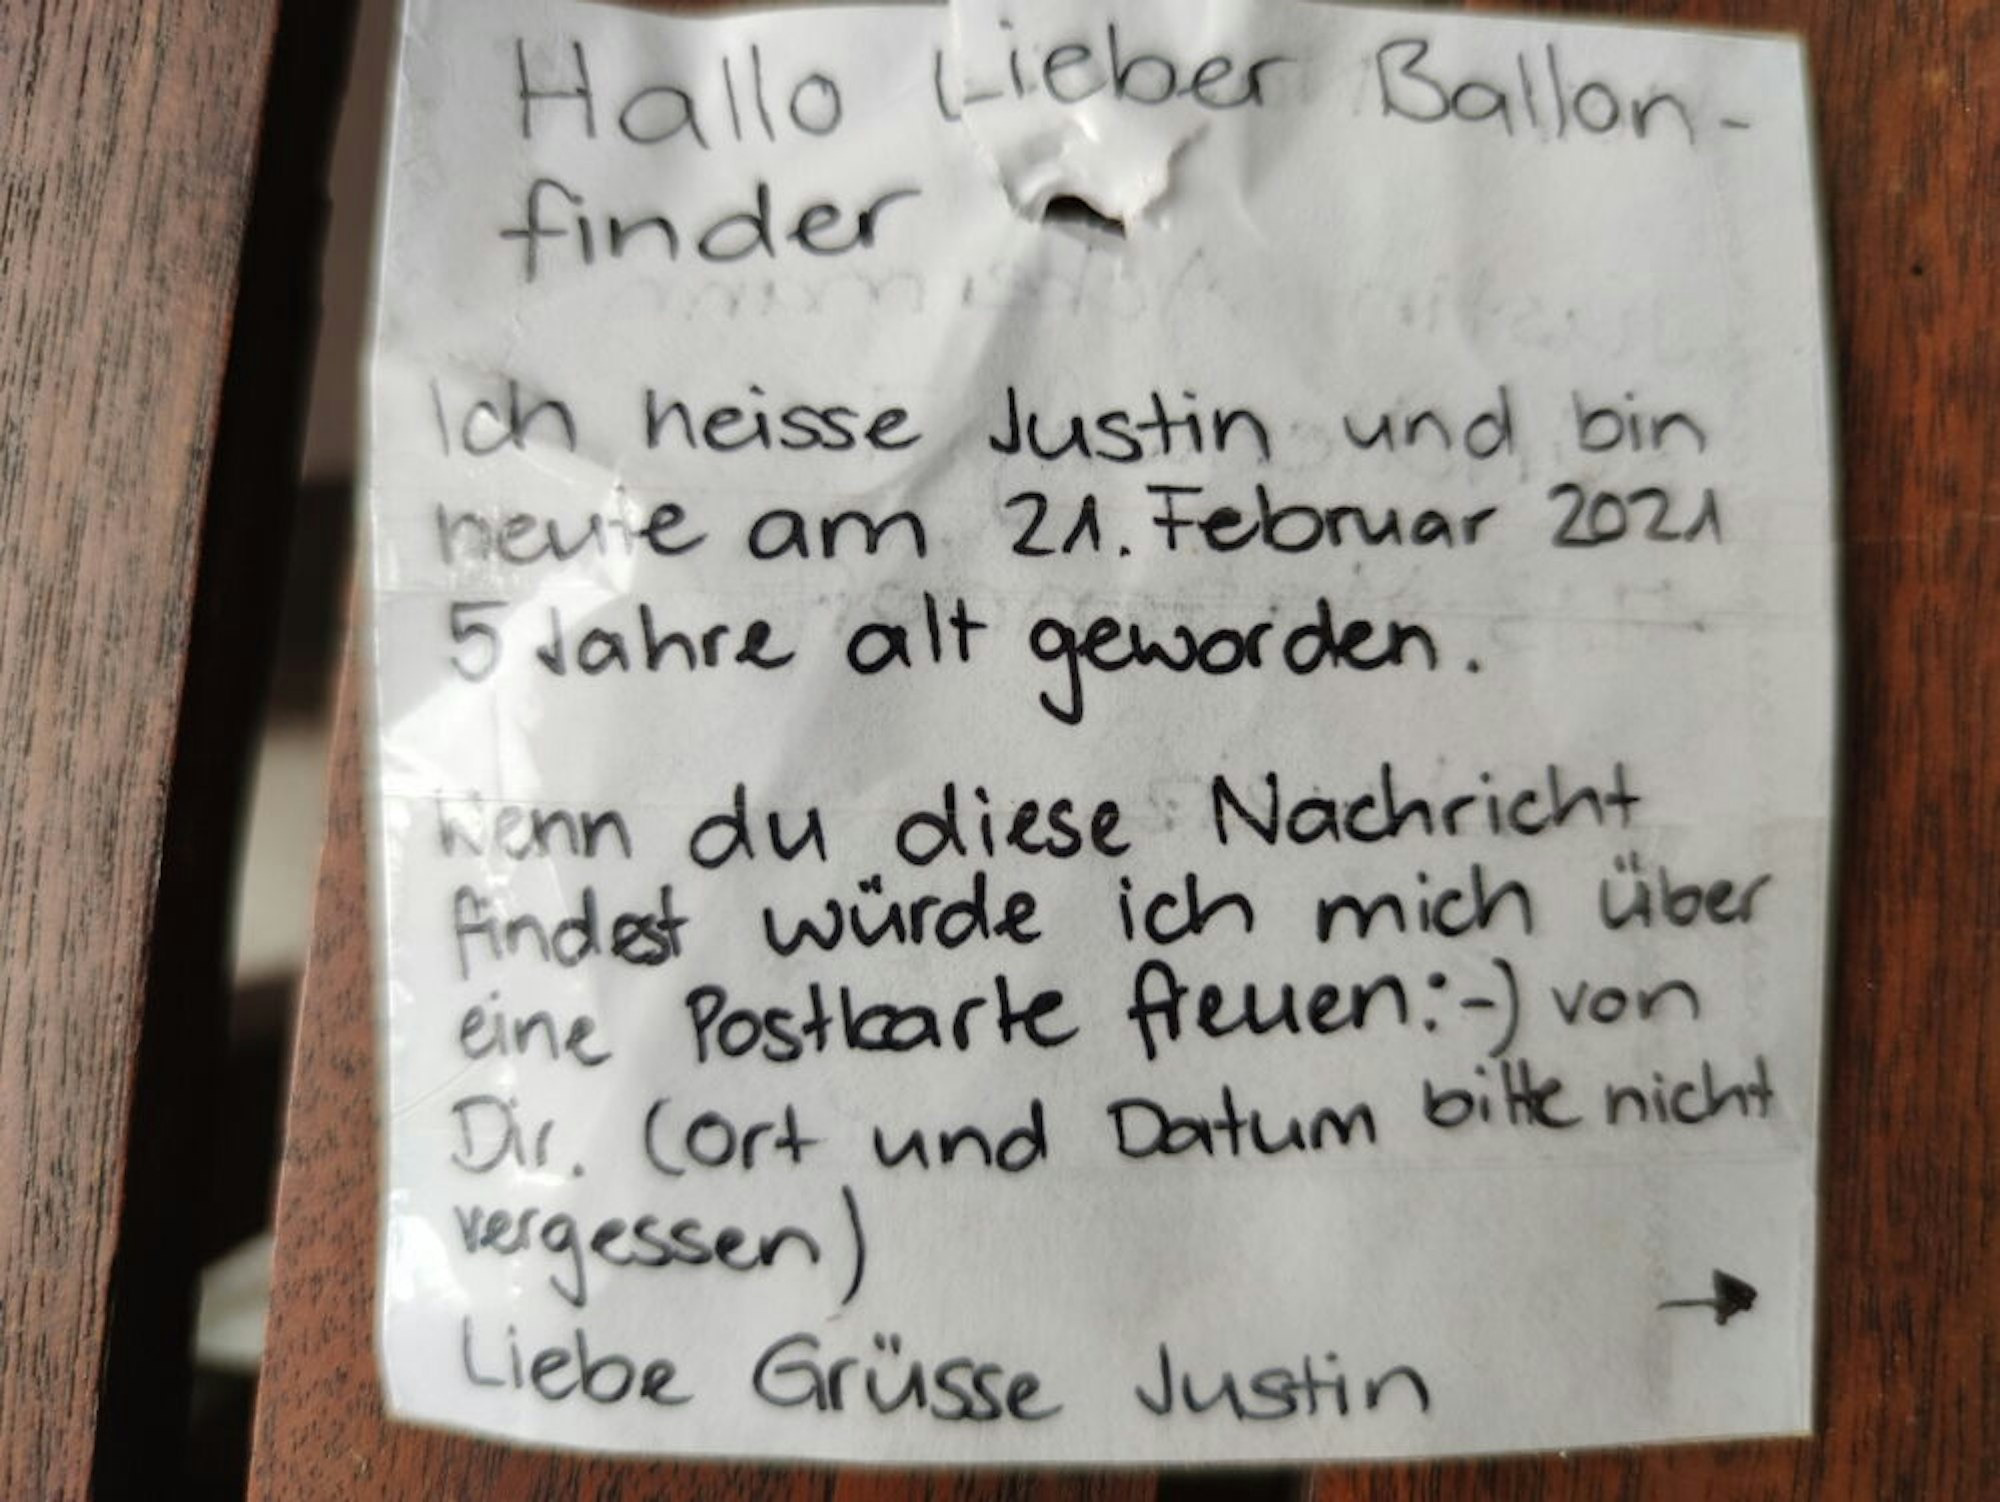 Hallo Lieber Ballon-
finder
Ich heisse Justin und bin
heute am 21. Februar 2021
5 Jahre alt geworden.
Wenn du diese Nachricht
findest würde ich mich über
eine Postkarte freuen:-) von
Dir. (ort und Datum bitte nicht
vergessen)
→
Liebe Grüsse Justin